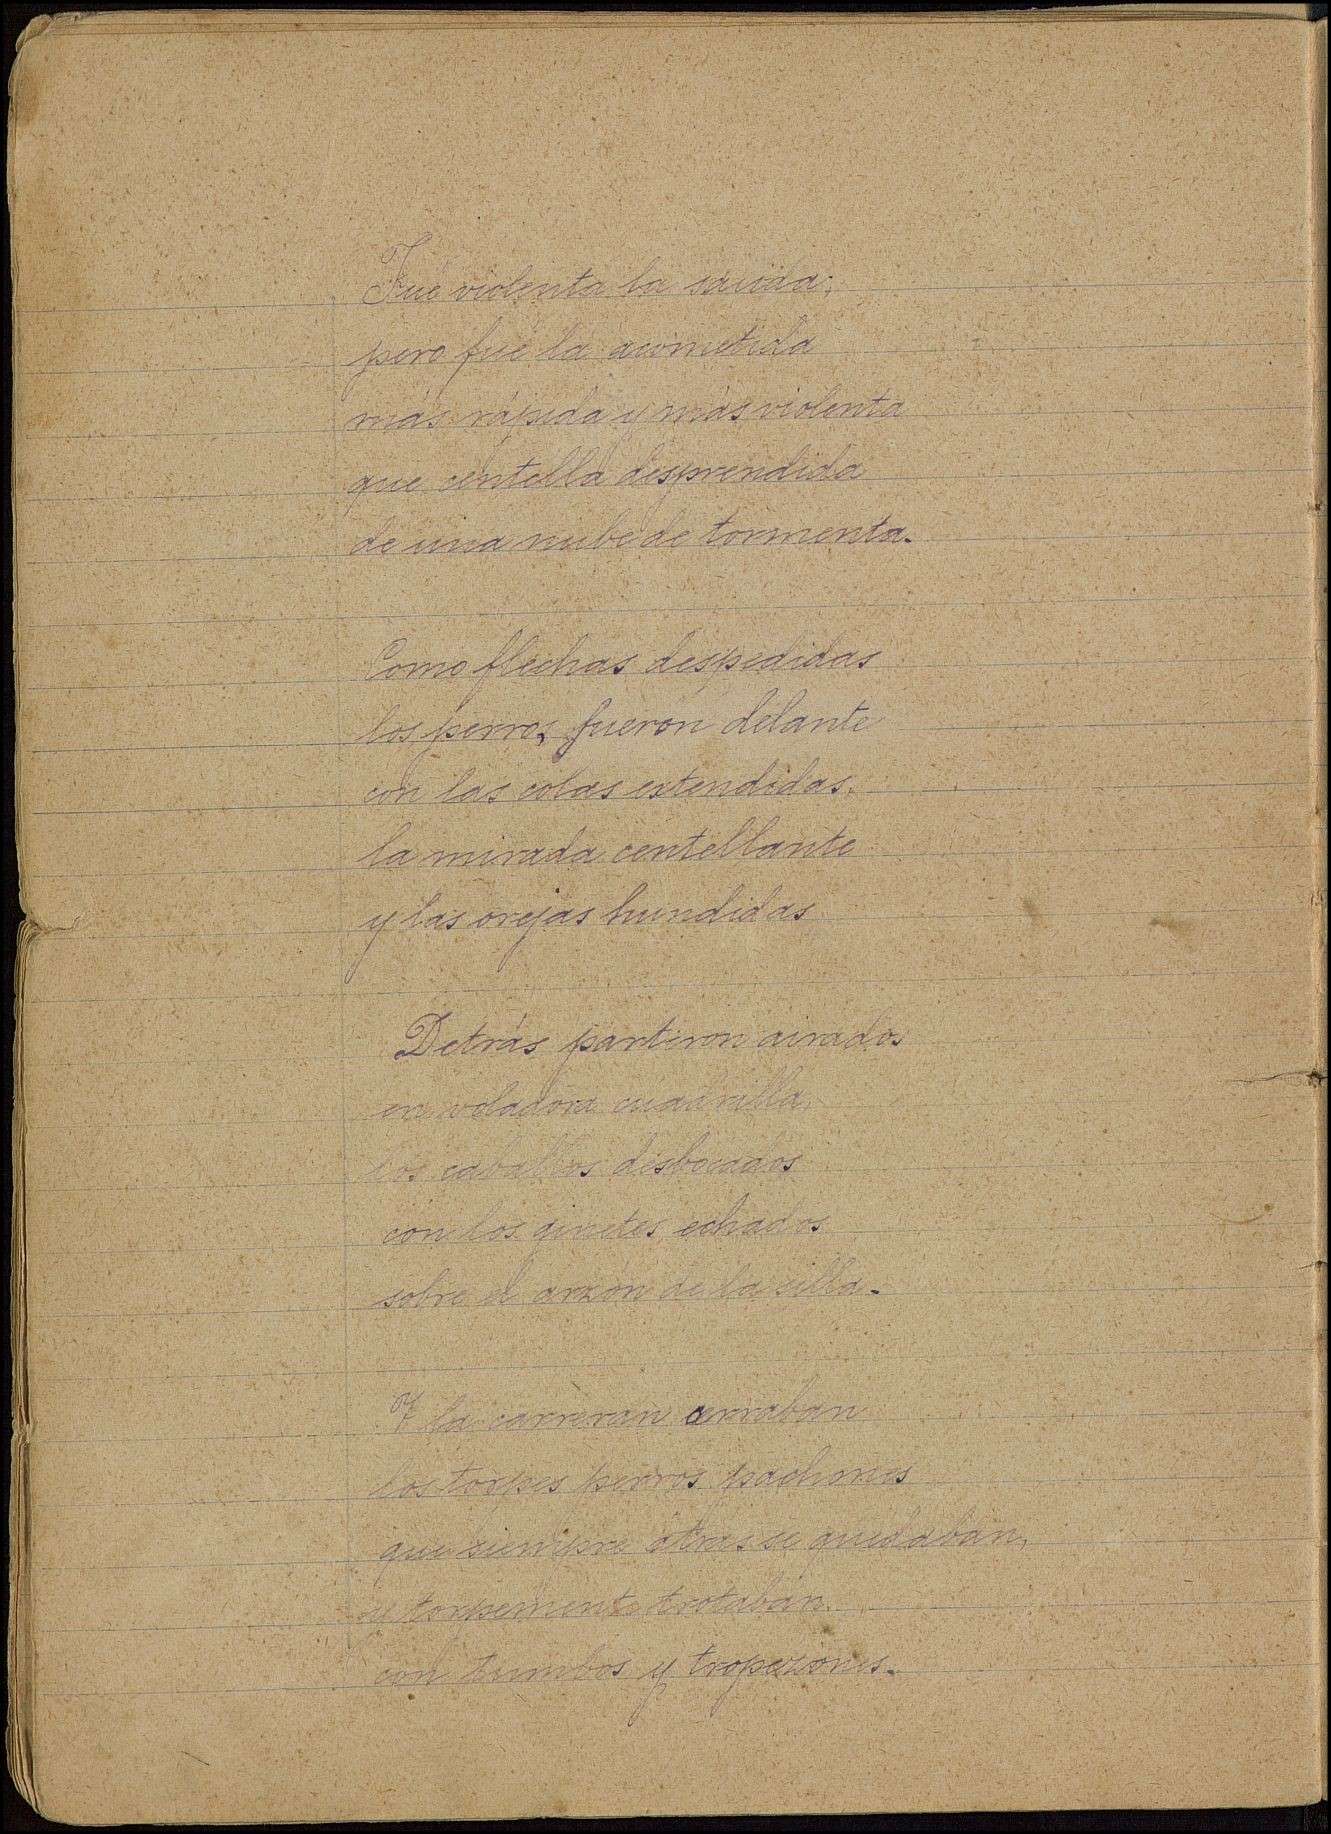 Fué violenta la sauida;
pero fué la acometida
más rápida y más violenta
que centella desprendida
de una nube de tormenta.
Como flechas despedidas
los perros, fueron delante
con las colas extendidas,
la mirada centellante
y las orejas hundidas
Detrás partiron airados
en voladora cuadrilla,
los caballos desbocados
con los ginetes echados
sobre el arzon de la silla.
Y la carreran cerraban
los torpes perros pachones
que siempre atras se quedaban,
y torpemente trotaban
con tumbos y tropezones.